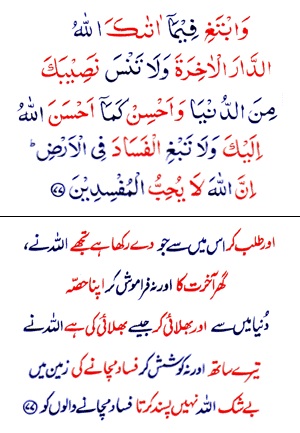 وَابْتَغِ فِيْمَاۤ اٰتٰىكَ اللّٰهُ
الدَّارَ الْاٰخِرَةَ وَلَا تَنْسَ نَصِيْبَكَ
مِنَ الدُّنْيَا وَاَحْسِنْ كَمَاۤ اَحْسَنَ اللّٰهُ
اِلَيْكَ وَلَا تَبْغِ الْفَسَادَ فِى الْاَرْضِ ؕ
اِنَّ اللّٰهَ لَا يُحِبُّ الْمُفْسِدِيْنَ ﴿۷۷﴾
اور طلب کر اس میں سے جو دے رکھا ہے تجھے اللہ نے،
گھر آخرت کا اور نہ فراموش کر اپنا حصّہ
دُنیا میں سے اور بھلائی کر جیسے بھلائی کی ہے اللہ نے
تیرے ساتھ اور نہ کوشش کر فساد مچانے کی زمین میں
بے شک اللہ نہیں پسند کرتا فساد مچانے والوں کو ﴿۷۷﴾